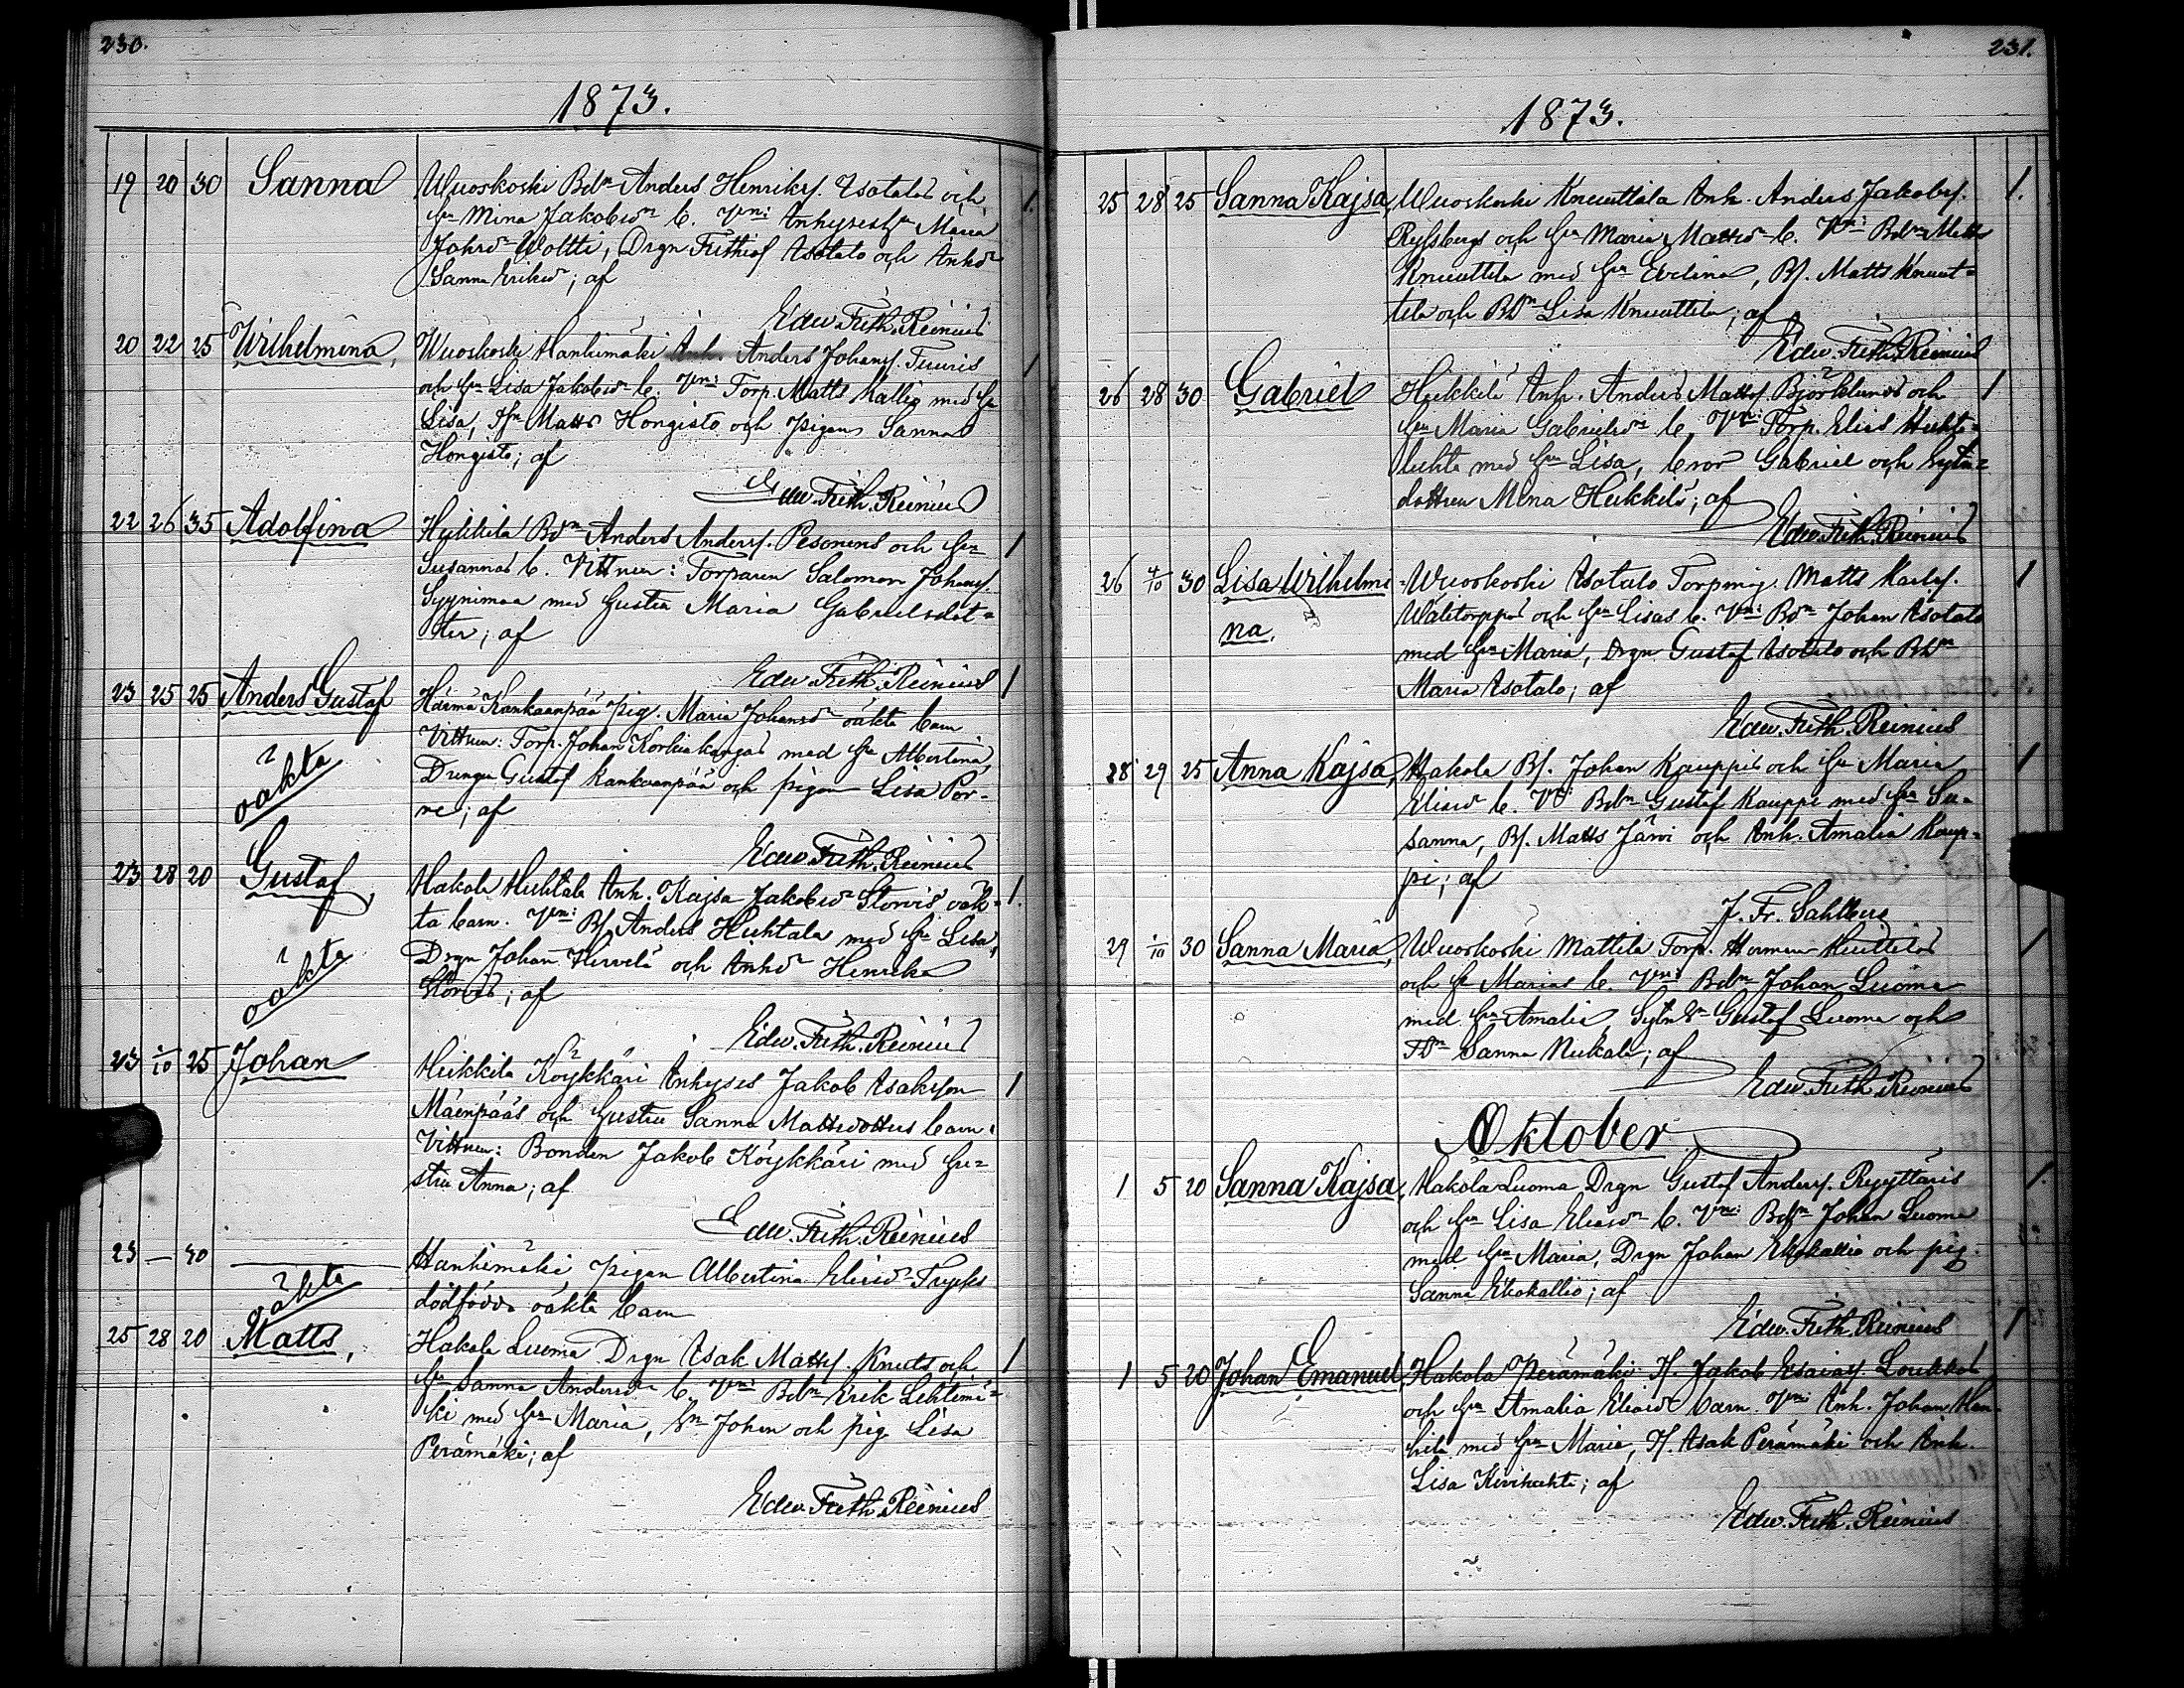 230.
1873.
19 20 30 Sanna Wuoskoski Bdn Anders Henrikss. Isotalos och
hu Mina Jakobsdrs b. Vn: Inhyseshu Maria
Johsdr Woltti, Drgn Frithiof Isotalo och Inhdr
Sanna Eriksdr; af
Edw. Frith. Reinius
20 22 25 Wilhelmina, Wuoskoski Hankimäki Inh. Anders Johanss. Tuuris
och hu Lisa Jakobsdrs b. Vn: Torp. Matts Kallio med hu
Lisa, Matts Hongisto och pigan Sanna
Hongisto; af
Edw. Frith. Reinius
22 26 35 Adolfina Heikkilä Bdn Anders Anderss. Pesonens och hu
Susannas b. Vittnen: Torparen Salomon Johanss.
Syynimaa med hustru Maria Gabrielsdot-
ter; af
Edw. Frith. Reinius
23 25 25 Anders Gustaf Härmä Kankaanpää pig. Maria Johansdrs oäkta barn
Vittnen: Torp. Johan Korkiakangas med hu Albertina,
oäkta Drengen Gustaf Kankaanpää och pigan Lisa Por-
re; af
Edw. Frith. Reinius
23 28 20 Gustaf, Hakola Huhtala Inh. Kajsa Jakobsdr Storvis oäk-
ta barn. Vn: Bs. Anders Huhtala med hu Lisa,
oäkta Drgn Johan Hirvelä och Inhdr Henrika
; af
Edw. Frith. Reinius
23 1/10 25 Johan Heikkilä Köykkäri Inhyses Jakob Isaksson
Mäenpääs och hustru Sanna Mattsdotters barn.
Vittnen: Bonden Jakob Köykkäri med hu-
stru Anna; af
Edw. Frith. Reinius
23 — 30 Hankimäki pigan Albertina Eliasdr Trycks
oäkta dödfödda oäkta barn
25 28 20 Matts, Hakola Luoma Drgn Isak Mattss. Knuts och
hu Sanna Andersdrs b. Vn: Bdn Erik Lehtimä-
ki med hu Maria, Johan och pig. Lisa
Perämäki; af
Edw. Frith. Reinius
231.
1873.
25 28 25 Sanna Kajsa, Wuoskoski Knuuttila Inh. Anders Jakobss.
Ryssbergs och hu Maria Mattsdrs b. Vn: Bdn Matts
Knuuttila med hu Evelina, Bs. Matts Knuut-
tila och Bdr Lisa Knuuttila; af
Edw. Frith. Reinius
26 28 30 Gabriel Heikkilä Inh. Anders Mattss. Björklunds och
hu Maria Gabrielsdrs b. Vn: Torp. Elias Huhta-
luhta med hu Lisa, bror Gabriel och Sytn-
dottren Mina Heikkilä; af
Edw. Frith. Reinius
26 4/10 30 Lisa Wilhelmi- Wuoskoski Isotalo Torpmåg. Matts Karlss.
na. Walitorppas och hu Lisas b. Vn: Bdn Johan Isotalo
med hu Maria, Drgn Gustaf Isotalo och Bdr
Maria Isotalo; af
Edw. Frith. Reinius
28 29 25 Anna Kajsa, Hakola Bs. Johan Kauppis och hu Maria
Eliasdrs b. Vn: Bdn Gustaf Kauppi med hu Su-
sanna, Bs. Matts Järvi och Inh. Amalia Kaup-
pi; af
J. Fr. Sahlberg
29 1/10 30 Sanna Maria, Wuoskoski Mattila Torp. Herman
och hu Marias b. Vn: Bdn Johan Luoma
med hu Amalia, Sytn Gustaf Luoma och
Sanna Niukala; af
Edw. Frith. Reinius
Oktober
1 5 20 Sanna Kajsa, Hakola Luoma Drgn Gustaf Anderss. Ryyttäris
och hu Lisa Eliasdrs b. Vn: Bdn Johan Luoma
med hu Maria, Drgn Johan Ekokallio och pig.
Sanna Ekokallio; af
Edw. Frith. Reinius
1 5 20 Johan Emanuel, Hakola Perämäki Jakob Esaiass. Loukkos
och hu Amalia Eliasdrs barn. Vn: Inh. Johan Han-
kila med hu Maria, Isak Perämäki och Inh.
Lisa Kivihuhta; af
Edw. Frith. Reinius